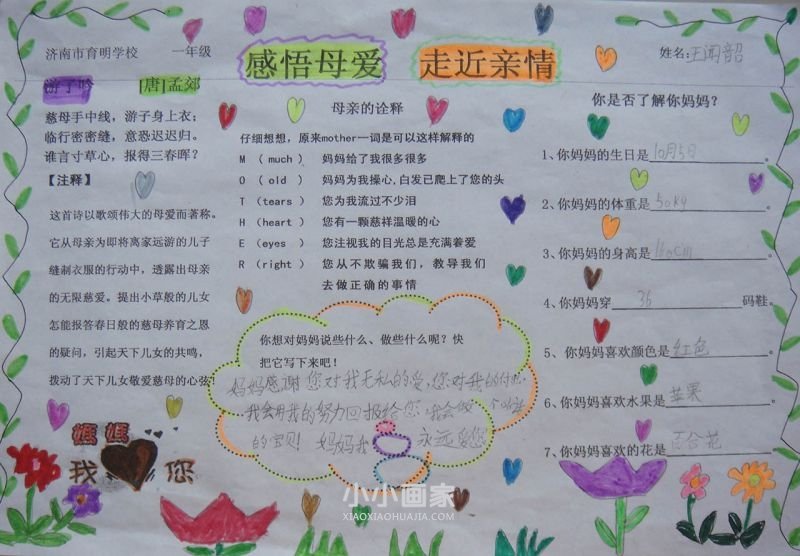 济南市育明学校 一年级
感悟母爱 走近亲情
姓名:王闻韶
游子吟 [唐]孟郊
慈母手中线，游子身上衣；
临行密密缝，意恐迟迟归。
谁言寸草心，报得三春晖？
【注释】
这首诗以歌颂伟大的母爱而著称。
它从母亲为即将离家远游的儿子
缝制衣服的行动中，透露出母亲
的无限慈爱。提出小草般的儿女
怎能报答春日般的慈母养育之恩
的疑问，引起天下儿女的共鸣，
拨动了天下儿女敬爱慈母的心弦！
妈妈
我 您
母亲的诠释
仔细想想，原来mother一词是可以这样解释的
M （much） 妈妈给了我很多很多
O （old ） 妈妈为我操心,白发已爬上了您的头
T （tears） 您为我流过不少泪
H （heart） 您有一颗慈祥温暖的心
E （eyes ） 您注视我的目光总是充满着爱
R （right） 您从不欺骗我们，教导我们
去做正确的事情
你想对妈妈说些什么、做些什么呢？快
把它写下来吧！
妈妈感谢您对我无私的爱,您对我的付出
我会用我的努力回报给您,我会做一个
的宝贝！妈妈我 永远爱您
你是否了解你妈妈？
1、你妈妈的生日是10月5日。
2、你妈妈的体重是50kg。
3、你妈妈的身高是160cm。
4、你妈妈穿36码鞋。
5、你妈妈喜欢颜色是红色。
6、你妈妈喜欢水果是苹果。
7、你妈妈喜欢的花是百合花。
小小画家
XIAOXIAOHUAJIA.COM